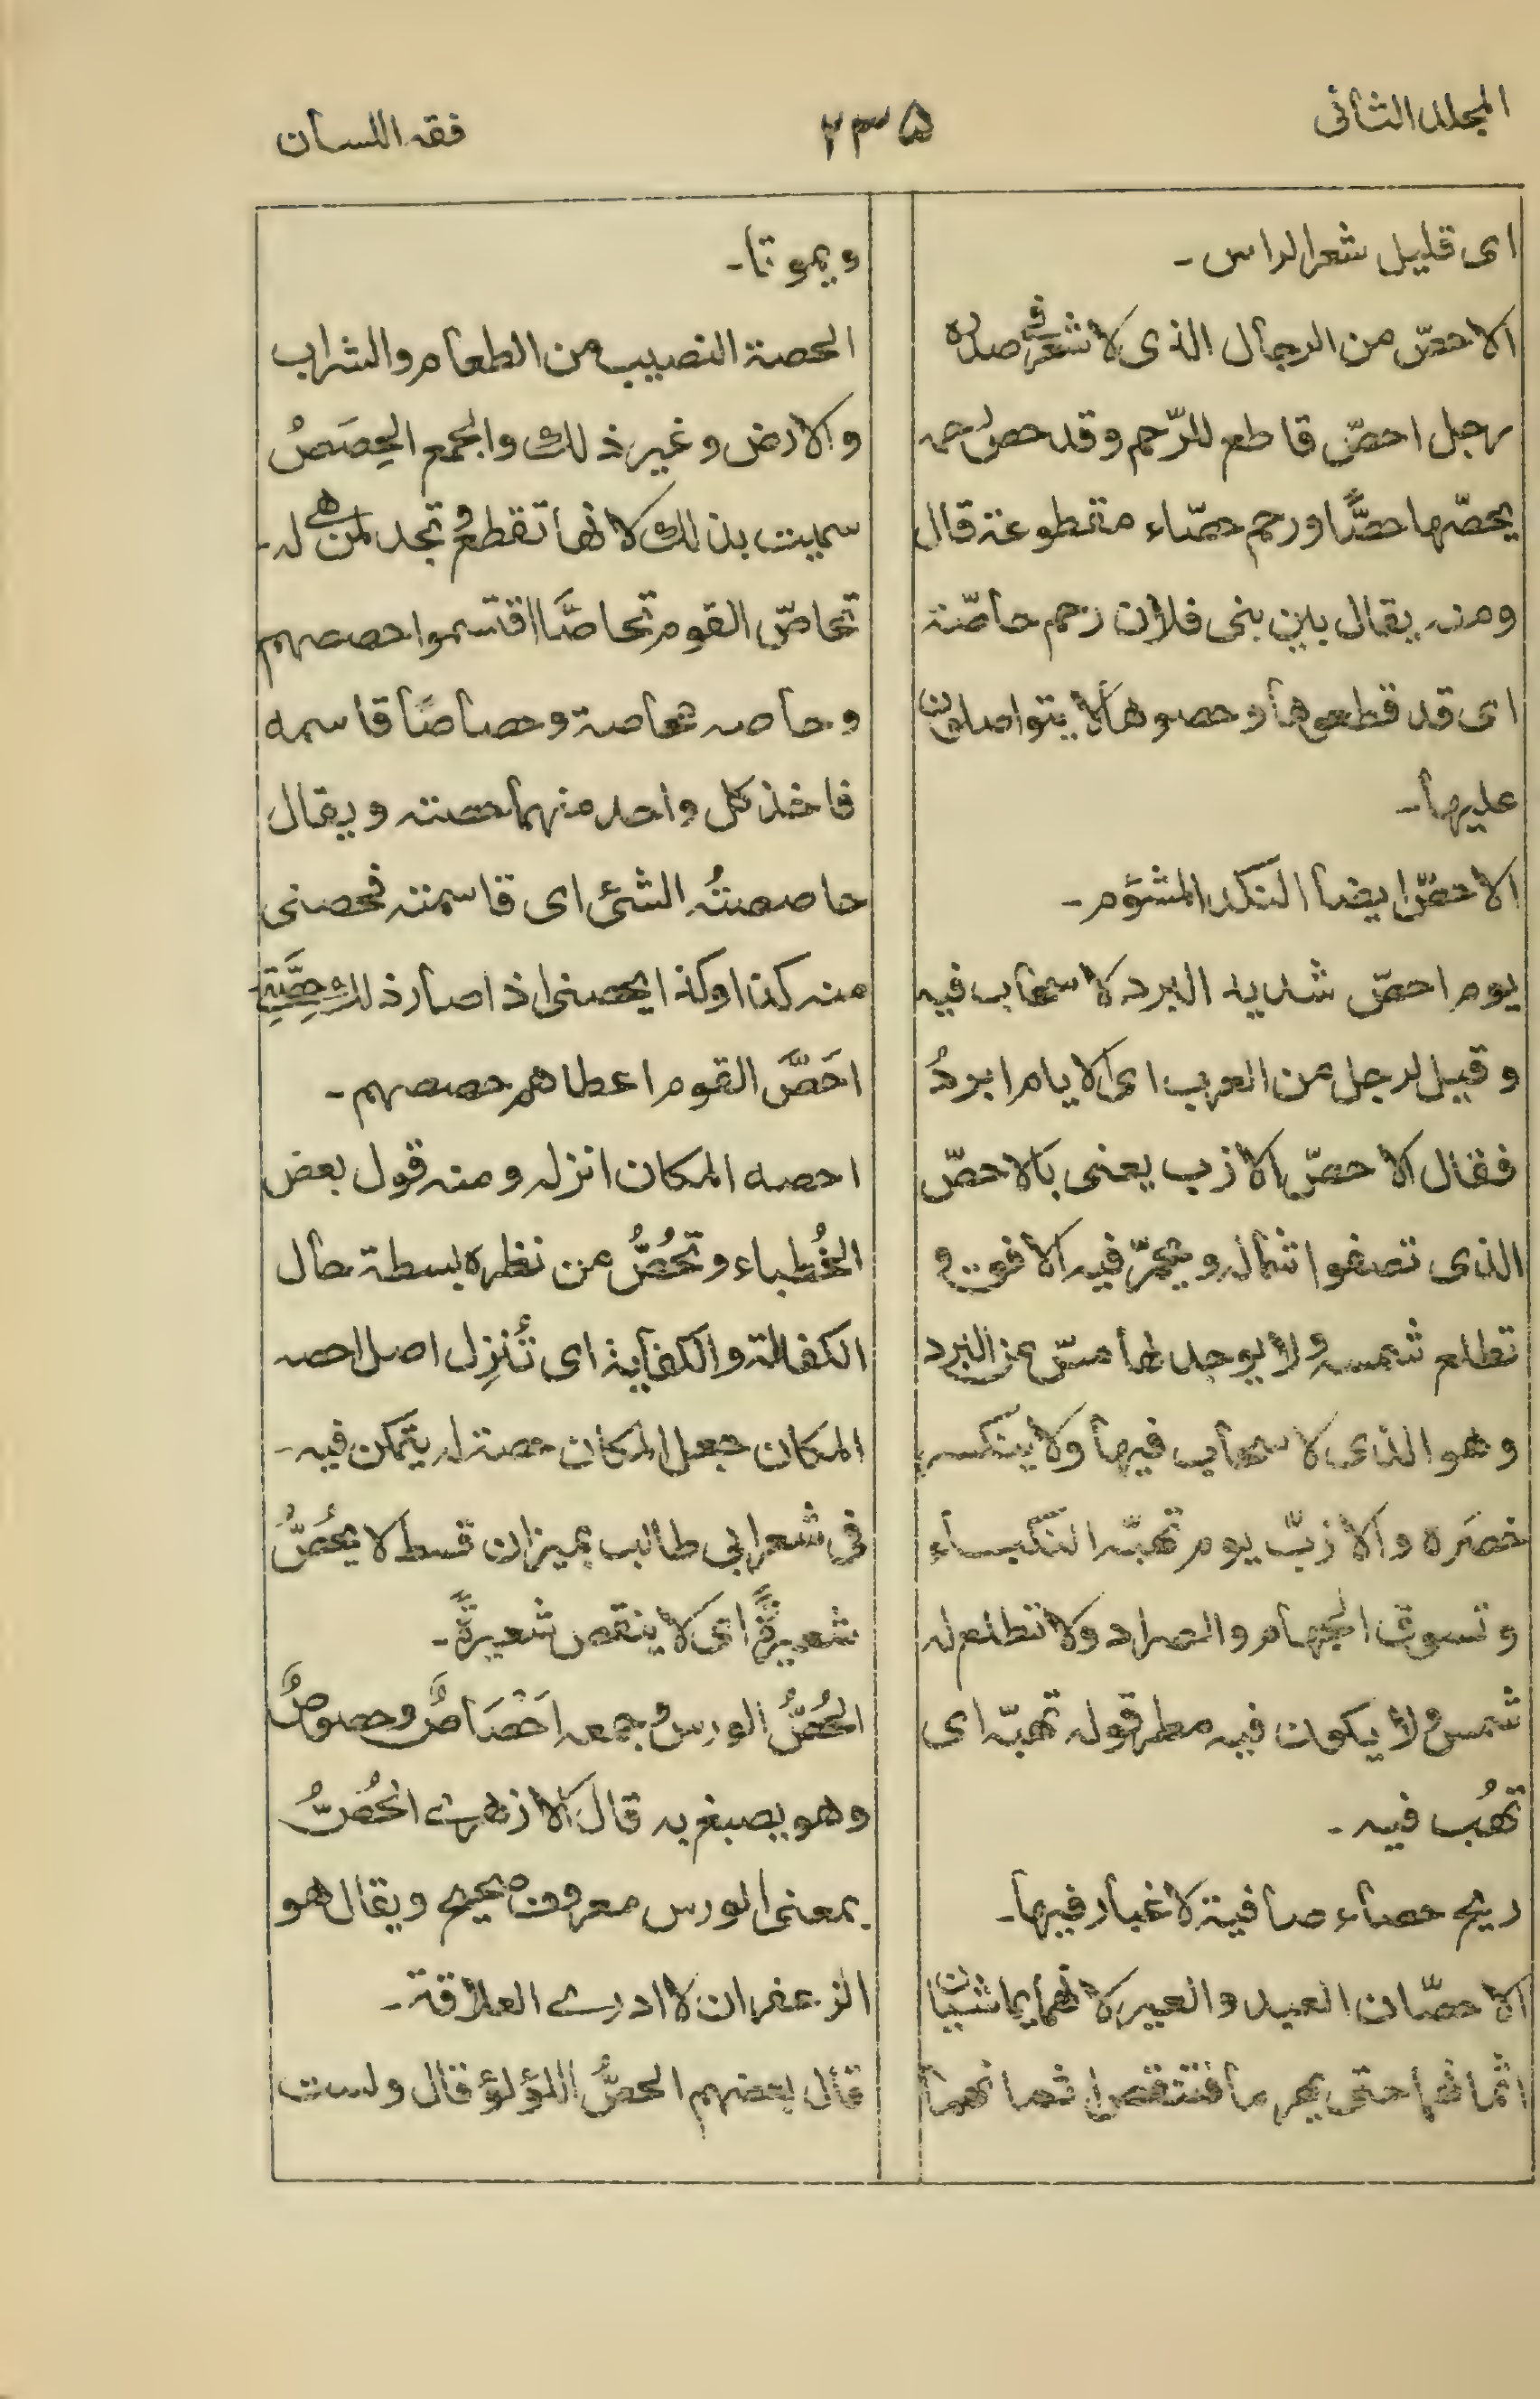 المجلد الثانى
۲۳۵
فقہ اللسان
اى قليل شعر الراس ـ
الاحصّ من الرجال الذى لا شعر فى صدره
رجل احصّ قاطع للرّحم وقد حصّ رحمه
يحصّها حصًّا ورحم حصّاء مقطوعة قال
ومنه يقال بين بنى فلان رحم حاصّة
اى قد قطعوها وحصوها لا يتواصلون
عليها ـ
الاحصّ ايضا النكد المشؤم ـ
يوم احصّ شديد البرد لا سحاب فيه
وقيل لرجل من العرب اى الايام ابردُ
فقال الاحصّ الازب يعنى بالاحصّ
الذى تصفوا شماله ويحمرّ فيه الافق و
تطلع شمسه ولا يوجد لها مسّ من البرد
وهو الذى لا سحاب فيها ولا ينكسر
خصَره والازبّ يوم تهبّه النّكباء
وتسوق الجهام والصراد ولا تطلع له
شمس ولا يكون فيه مطر قوله تهبّه اى
تهُب فيه ـ
ريح حصاء صافية لا غبار فيها ـ
الاحصّان العبد والعير لانهما يماشيان
اثمانهما حتى يهرما فتنتقص اثمانهما
ويموتا ـ
الحصة النصيب من الطعام والشراب
والارض وغير ذلك والجمع الحِصَصُ
سميت بذلك لانها تقطع و تجد لمن هى له ـ
تحاصّ القوم تحاصًّا اقتسموا حصصهم
وحاصه محاصة وحصاصًا قاسمه
فاخذ كل واحد منهما حصته ويقال
حاصصتُه الشئ اى قاسمته فحصنى
منه كذا وكذا يحصنى اذا صار ذلك حِصَّتِى
احَصَّ القوم اعطاهم حصصهم ـ
احصه المكان انزله ومنه قول بعض
الخُطباء وتحُصُّ من نظره بسطة حال
الكفالة والكفاية اى تُنزِل اصل احصه
المكان جعل المكان حصة له يتمكن فيه ـ
فى شعر ابى طالب بميزان قسط لا يحُصُّ
شعيرةً اى لا ينقص شعيرةً ـ
الحُصُّ الورس وجمعه اَحْصَاصٌ وحصوصٌ
وهو يصبغ به قال الازهرى الحُصّ
بمعنى الورس معروف صحيح ويقال هو
الزعفران لا ادرى العلاقة ـ
قال بعضهم الحصُّ اللؤلؤ قال ولست